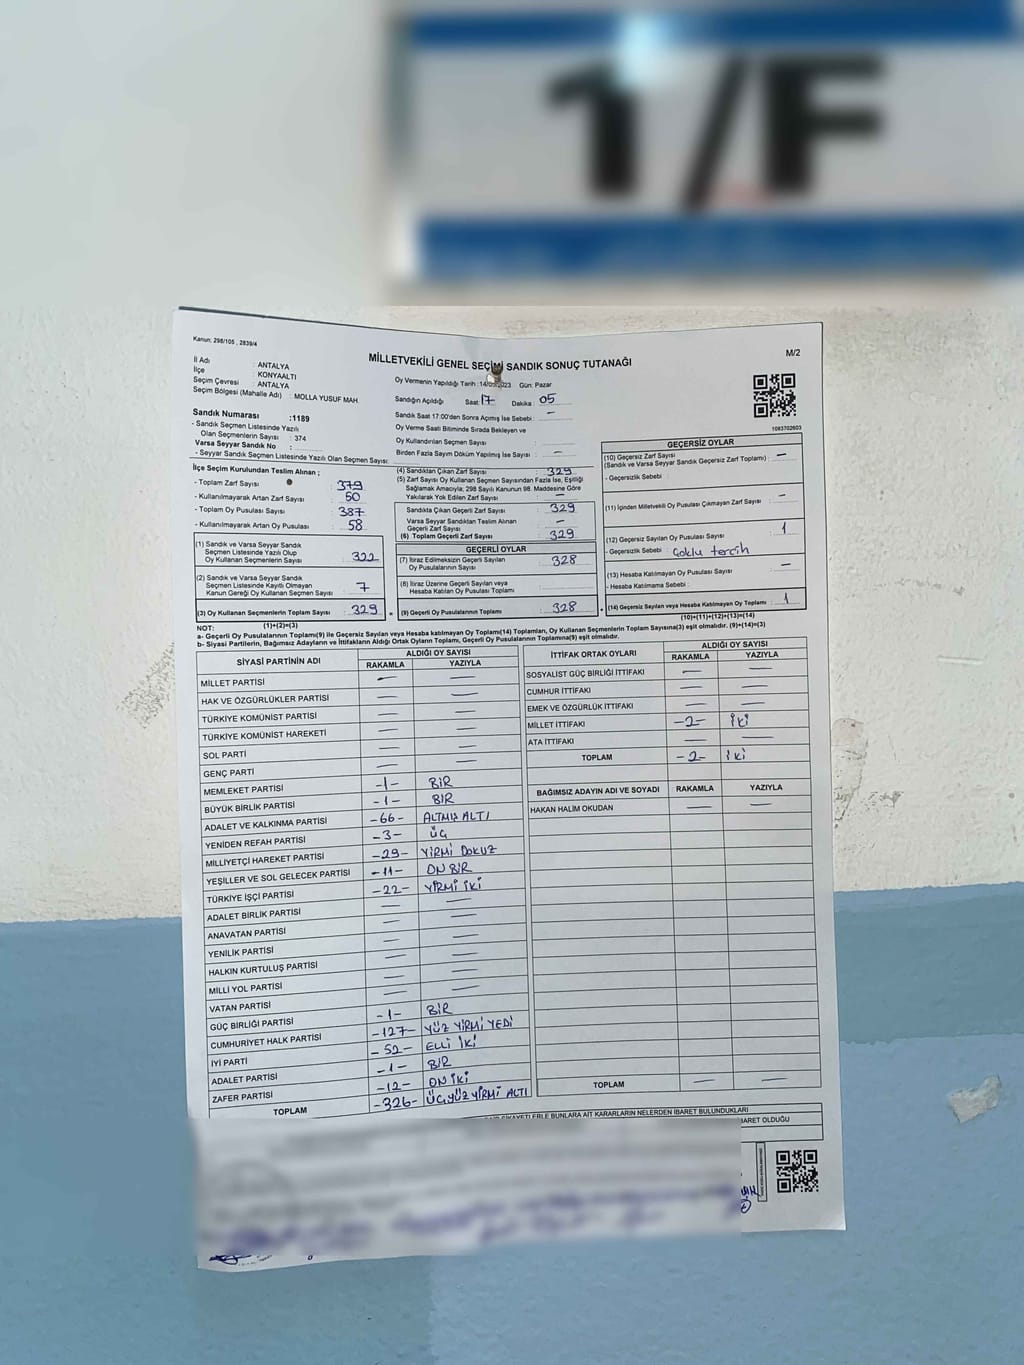 1/F
Kanun: 298/105 , 2839/4
MİLLETVEKİLİ GENEL SEÇİMİ SANDIK SONUÇ TUTANAĞI
M/2
İl Adı : ANTALYA
İlçe : KONYAALTI
Seçim Çevresi : ANTALYA
Seçim Bölgesi (Mahalle Adı) : MOLLA YUSUF MAH.
Sandık Numarası :1189
- Sandık Seçmen Listesinde Yazılı
Olan Seçmenlerin Sayısı : 374
Varsa Seyyar Sandık No :
- Seyyar Sandık Seçmen Listesinde Yazılı Olan Seçmen Sayısı:
Oy Vermenin Yapıldığı Tarih :14/05/2023 Gün: Pazar
Sandığın Açıldığı Saat: 17 Dakika: 05
Sandık Saat 17:00'den Sonra Açımış İse Sebebi : —
Oy Verme Saati Bitiminde Sırada Bekleyen ve
Oy Kullandırılan Seçmen Sayısı :
Birden Fazla Sayım Döküm Yapılmış İse Sayısı : —
1083702603
İlçe Seçim Kurulundan Teslim Alınan ;
- Toplam Zarf Sayısı : 379
- Kullanılmayarak Artan Zarf Sayısı : 50
- Toplam Oy Pusulası : 387
- Kullanılmayarak Artan Oy Pusulası : 58
(1) Sandık ve Varsa Seyyar Sandık
Seçmen Listesinde Yazılı Olup
Oy Kullanan Seçmenlerin Sayısı : 322
(2) Sandık ve Varsa Seyyar Sandık
Seçmen Listesinde Kayıtlı Olmayan
Kanun Gereği Oy Kullanan Seçmen Sayısı : 7
(3) Oy Kullanan Seçmenlerin Toplam Sayısı : 329
(1)+(2)=(3)
(4) Sandıktan Çıkan Zarf Sayısı : 329
(5) Zarf Sayısı Oy Kullanan Seçmen Sayısından Fazla İse, Eşitliği
Sağlamak Amacıyla; 298 Sayılı Kanunun 98. Maddesine Göre
Yakılarak Yok Edilen Zarf Sayısı : —
Sandıkta Çıkan Geçerli Zarf Sayısı : 329
Varsa Seyyar Sandıktan Teslim Alınan
Geçerli Zarf Sayısı : —
(6) Toplam Geçerli Zarf Sayısı : 329
GEÇERLİ OYLAR
(7) İtiraz Edilmeksizin Geçerli Sayılan
Oy Pusulalarının Sayısı : 328
(8) İtiraz Üzerine Geçerli Sayılan veya
Hesaba Katılan Oy Pusulası Toplamı :
(9) Geçerli Oy Pusulalarının Toplamı : 328
GEÇERSİZ OYLAR
(10) Geçersiz Zarf Sayısı
(Sandık ve Varsa Seyyar Sandık Geçersiz Zarf Toplamı) : —
- Geçersizlik Sebebi :
(11) İçinden Milletvekili Oy Pusulası Çıkmayan Zarf Sayısı : —
(12) Geçersiz Sayılan Oy Pusulası Sayısı : 1
- Geçersizlik Sebebi : Çoklu tercih
(13) Hesaba Katılmayan Oy Pusulası Sayısı : —
- Hesaba Katılmama Sebebi :
(14) Geçersiz Sayılan veya Hesaba Katılmayan Oy Toplamı : 1
(10)+(11)+(12)+(13)=(14)
NOT:
a- Geçerli Oy Pusulalarının Toplamı(9) ile Geçersiz Sayılan veya Hesaba katılmayan Oy Toplam(14) Toplamları, Oy Kullanan Seçmenlerin Toplam Sayısına(3) eşit olmalıdır. (9)+(14)=(3)
b- Siyasi Partilerin, Bağımsız Adayların ve İttifakların Aldığı Ortak Oyların Toplamı, Geçerli Oy Pusulalarının Toplamına(9) eşit olmalıdır.
SİYASİ PARTİNİN ADI ALDIĞI OY SAYISI
RAKAMLA YAZIYLA
MİLLET PARTİSİ — —
HAK VE ÖZGÜRLÜKLER PARTİSİ — —
TÜRKİYE KOMÜNİST PARTİSİ — —
TÜRKİYE KOMÜNİST HAREKETİ — —
SOL PARTİ — —
GENÇ PARTİ — —
MEMLEKET PARTİSİ -1- BİR
BÜYÜK BİRLİK PARTİSİ -1- BİR
ADALET VE KALKINMA PARTİSİ -66- ALTMIŞ ALTI
YENİDEN REFAH PARTİSİ -3- ÜÇ
MİLLİYETÇİ HAREKET PARTİSİ -29- YİRMİ DOKUZ
YEŞİLLER VE SOL GELECEK PARTİSİ -11- ON BİR
TÜRKİYE İŞÇİ PARTİSİ -22- YİRMİ İKİ
ADALET BİRLİK PARTİSİ — —
ANAVATAN PARTİSİ — —
YENİLİK PARTİSİ — —
HALKIN KURTULUŞ PARTİSİ — —
MİLLİ YOL PARTİSİ — —
VATAN PARTİSİ — —
GÜÇ BİRLİĞİ PARTİSİ -1- BİR
CUMHURİYET HALK PARTİSİ -127- YÜZ YİRMİ YEDİ
İYİ PARTİ -52- ELLİ İKİ
ADALET PARTİSİ -1- BİR
ZAFER PARTİSİ -12- ON İKİ
TOPLAM -326- ÜÇYÜZ YİRMİ ALTI
İTTİFAK ORTAK OYLARI ALDIĞI OY SAYISI
RAKAMLA YAZIYLA
SOSYALİST GÜÇ BİRLİĞİ İTTİFAKI — —
CUMHUR İTTİFAKI — —
EMEK VE ÖZGÜRLÜK İTTİFAKI — —
MİLLET İTTİFAKI -2- İKİ
ATA İTTİFAKI — —
TOPLAM -2- İKİ
BAĞIMSIZ ADAYIN ADI VE SOYADI RAKAMLA YAZIYLA
HAKAN HALİM OKUDAN — —
TOPLAM — —
ŞİKAYETLERLE BUNLARA AİT KARARLARIN NELERDEN İBARET BULUNDUKLARI
İBARET OLDUĞU